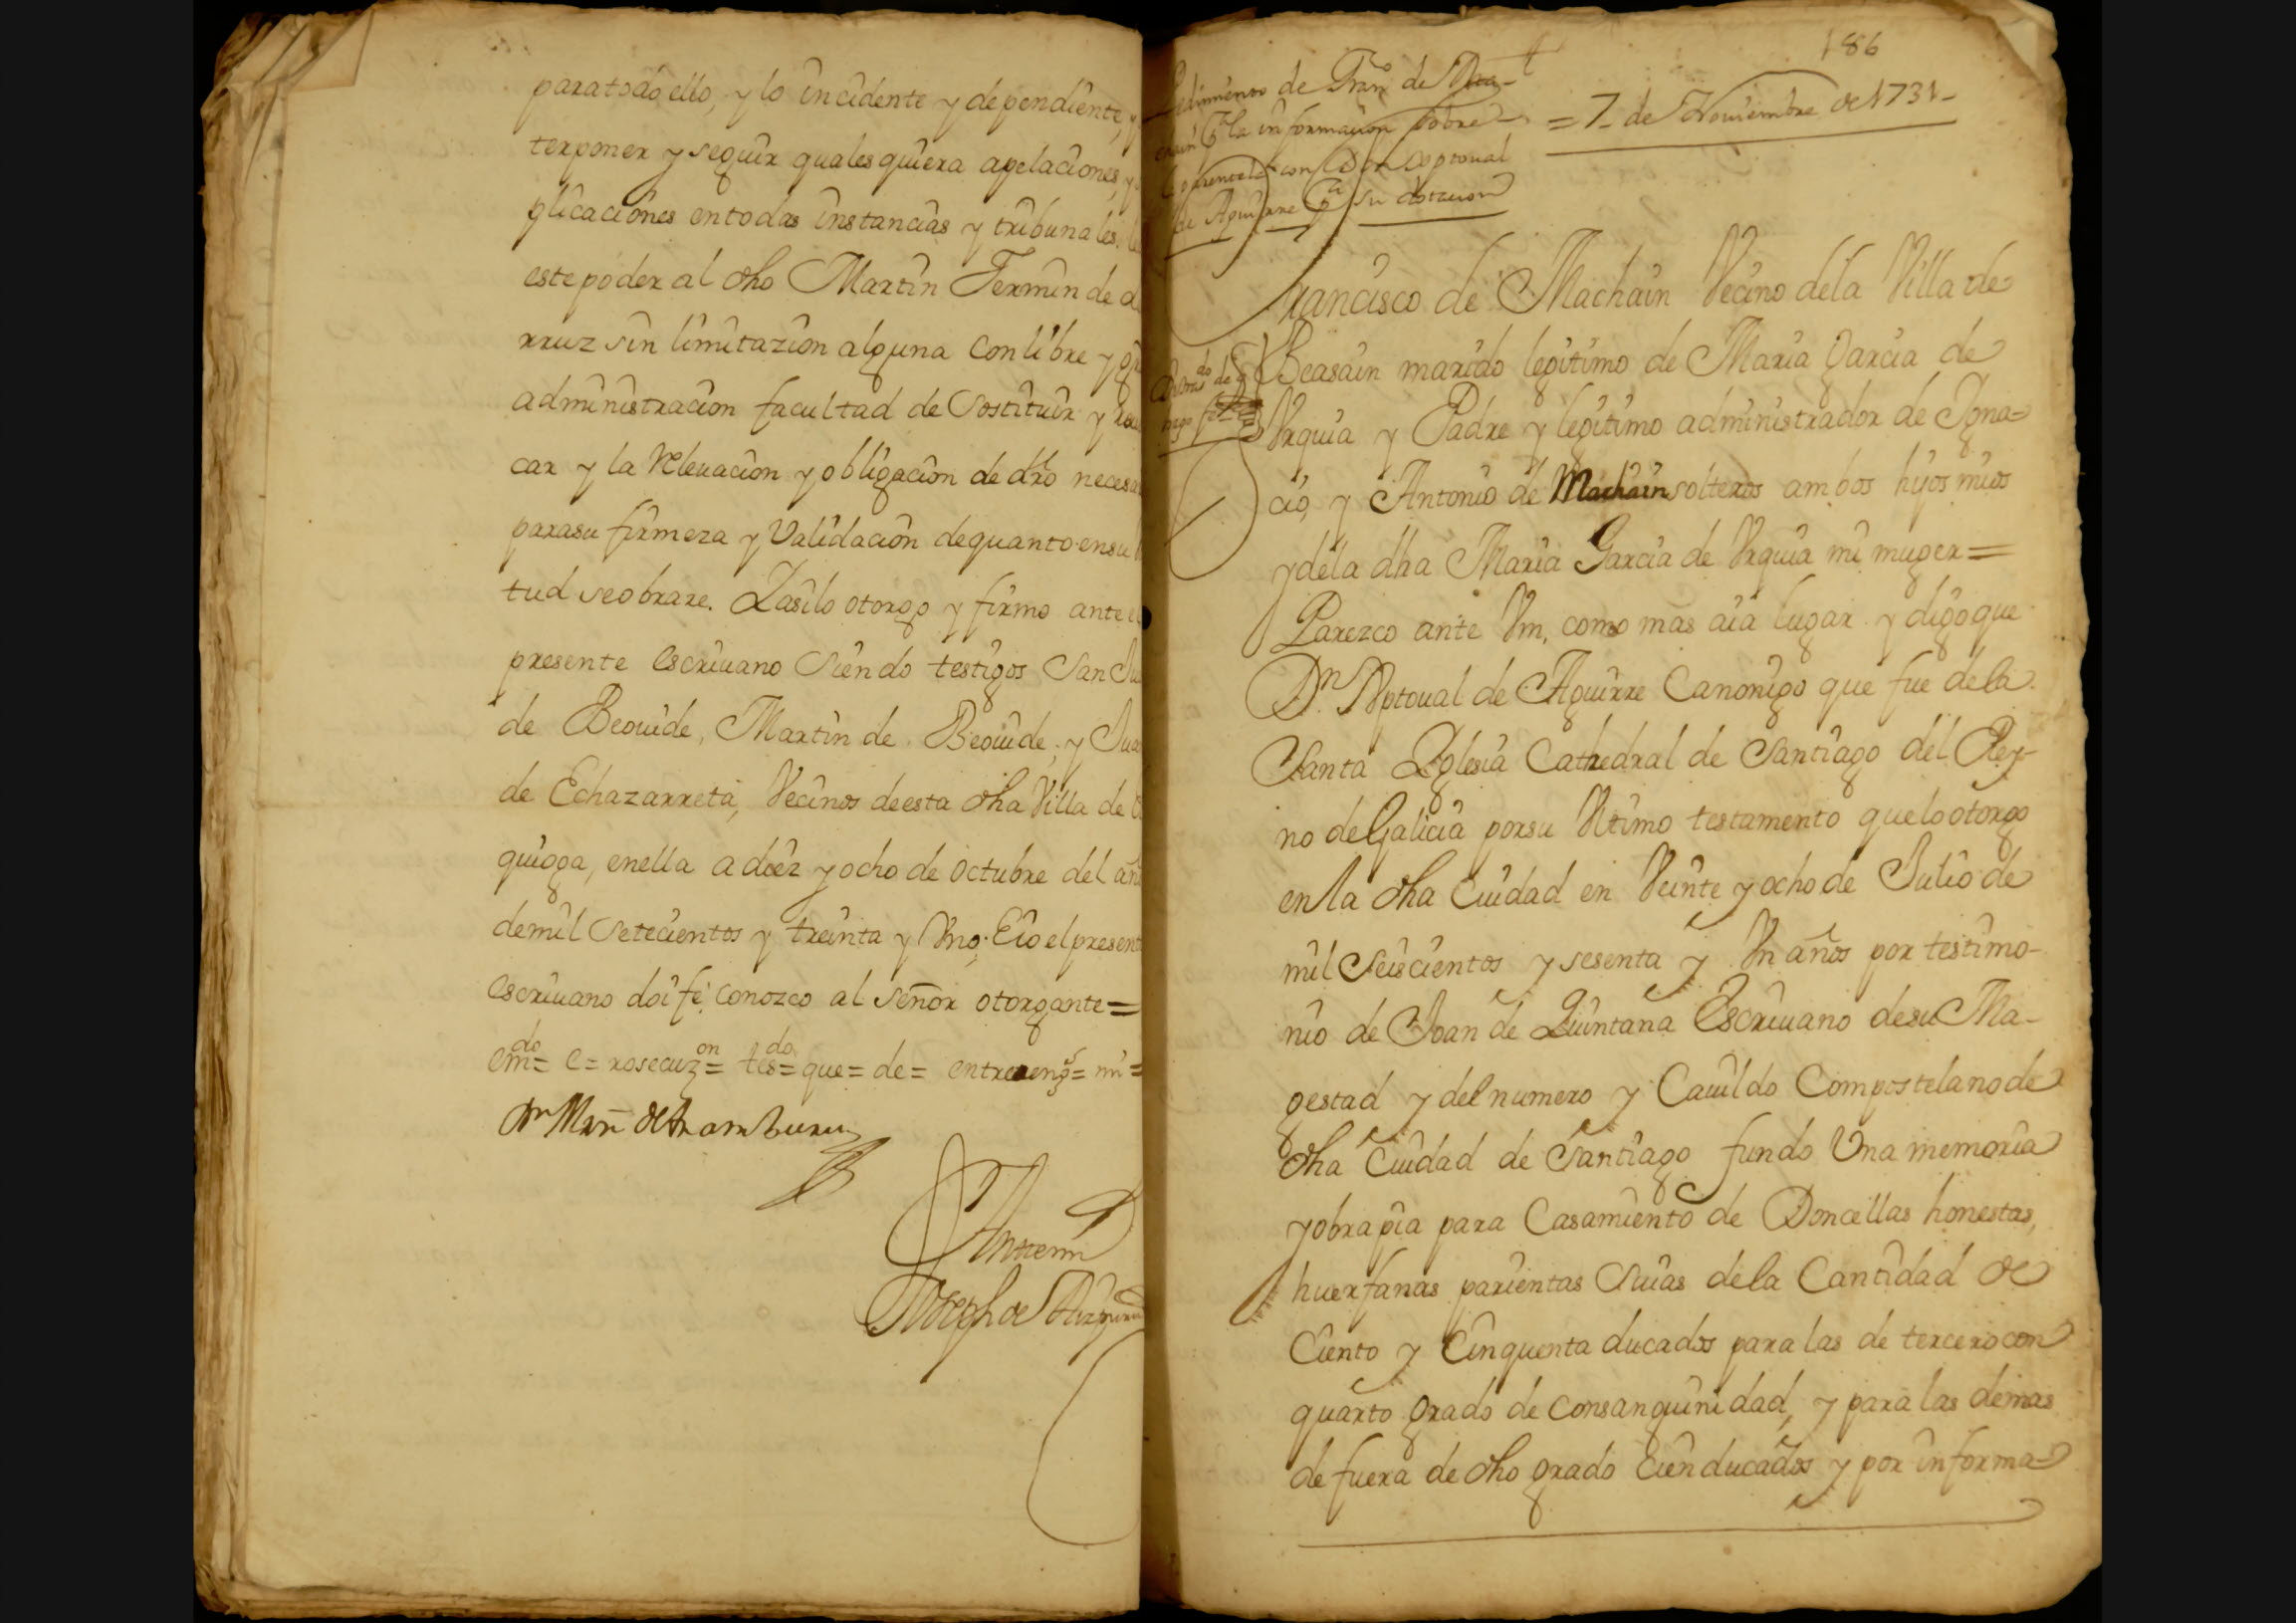 para todo, ello, y lo incidente y dependiente, y
terponer y seguir quales quiera apelaciones, y
plicaciones en todas instancias y tribunales,
este poder al dho Martin Fermin de
rruz sin limitazion alguna con libre y
administracion facultad de sostituir y
car y la relevacion y obligacion de dro neces
para su firmeza y validacion de quanto en su
tud se obrare. Y asi lo otorgo y firmo ante el
presente escriuano siendo testigos San Ju
de Beouide, Martin de Beouide, y Jua
de Echazarreta, Vecinos de esta dha Villa de
quigga, en ella a diez y ocho de octubre del añ
de mil setecientos y treinta y Vno. E io el present
escriuano doi fe, conozco al señor otorgante =
em.do = e = = tes.do = que = de = = mi =
Dn Mrn de Aramburu
Ante mi
Joseph de
186
de Fran.co de
la informacion sobre
con Dn Xptoual
de Aguirre su
= 7 de Nouiembre de 1731 -
Francisco de Machain Vecino de la Villa de
Beasain marido legitimo de Maria Garcia de
Vrquia y Padre y legitimo administrador de Igna=
cio, y Antonio de Machain solteros ambos hijos mios
y de la dha Maria Garcia de Vrquia mi muger =
Parezco ante Vm, como mas aia lugar y digo que
Dn. Xptoual de Aguirre Canonigo que fue de la
Santa Yglesia Cathedral de Santiago del Rey-
no de Galicia por su Vltimo testamento que lo otorgo
en la dha Ciudad en Veinte y ocho de Julio de
mil seiscientos y sesenta y Vn años por testimo-
nio de Joan de Quintana Escriuano de su Ma-
gestad y del numero y Cauildo Compostelano de
dha Ciudad de Santiago fundo Vna memoria
y obra pia para Casamiento de Doncellas honestas,
huerfanas parientas suias de la Cantidad de
Ciento y Cinquenta ducados para las de tercero con
quarto grado de Consanguinidad, y para las demas
de fuera de dho grado Cien ducados y por informa-